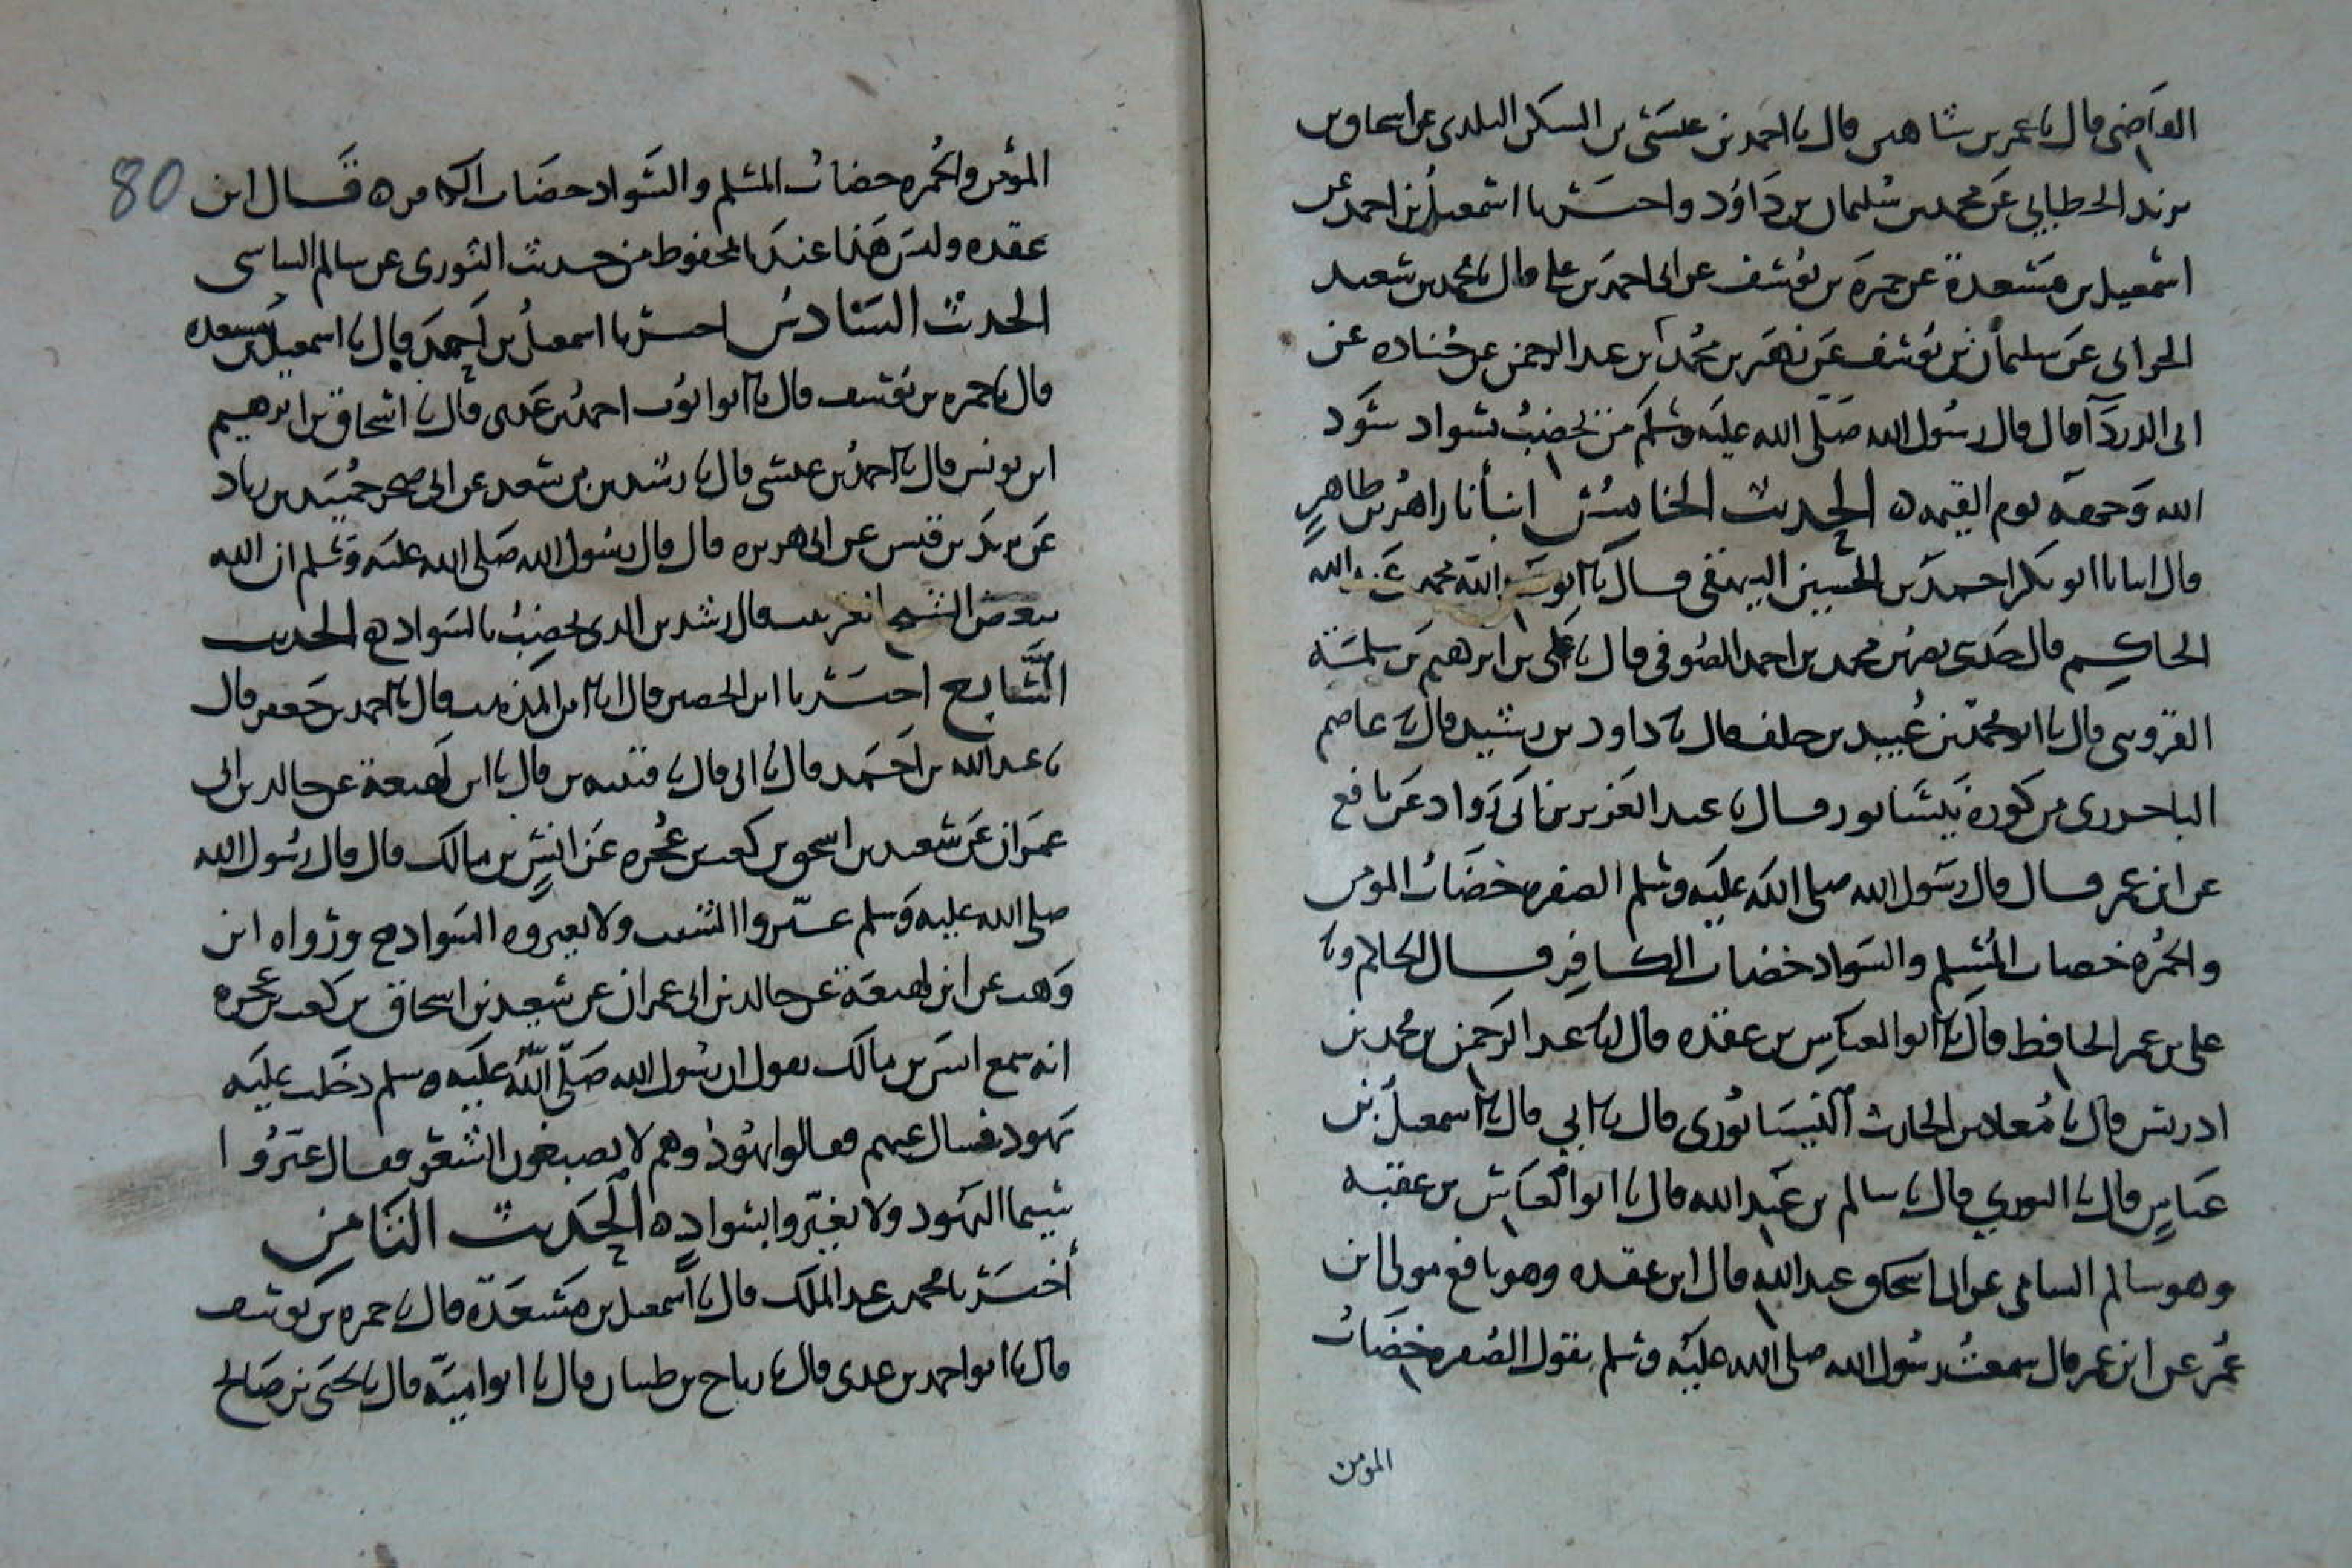 القاضى قال نا عمر بن شاهين قال نا احمد بن عيسى بن السكن البلدى عن اسحاق بن
يزيد الخطابي عن محمد بن سليمان بن داود واخبرنا اسمعيل بن احمد عن
اسمعيل بن مسعدة عن حمزة بن يوسف عن ابى احمد بن على قال نا محمد بن سعيد
الحرانى عن سليمان بن يوسف عن زهير بن محمد بن عبد الرحمن عن جناده عن
ابى الدردآ قال قال رسول الله صلى الله عليه وسلم من خضب بسواد سود
الله وجهه يوم القيمة ه الحديث الخامس انبأنا زاهر بن طاهر
قال انبانا ابو بكر احمد بن الحسين البيهقى قال نا ابو عبد الله محمد بن عبد الله
الحاكم قال حدثنى محمد بن احمد الصوفى قال نا على بن ابرهيم بن سلمة
القزوينى قال نا ابو محمد بن عبيد بن خلف قال نا داود بن رشيد قال نا عاصم
الباخرزى من كورة نيسابور قال نا عبد العزيز بن ابى رواد عن نافع
عن ابن عمر قال قال رسول الله صلى الله عليه وسلم الصفره خضاب المومن
والحمره خضاب المسلم والسواد خضاب الكافر قال الحاكم ونا
على بن عمر الحافظ قال نا ابو العباس بن عقده قال نا عبد الرحمن بن محمد بن
ادريس قال نا معاذ بن الحارث النيسابورى قال نا ابي قال نا اسمعيل بن
عباس قال نا الثوري قال نا سالم بن عبد الله قال نا ابو العباس بن عقبه
وهو سالم السامى عن ابى اسحاق عبد الله قال ابن عقده وهو نافع مولى ابن
عمر عن ابن عمر قال سمعت رسول الله صلى الله عليه وسلم يقول الصفره خضاب
المومن
80
المؤمن والحمره خضاب المسلم والسواد خضاب الكافر ه قال ابن
عقده وليس هذا عندنا بالمحفوظ من حديث الثورى عن سالم
الحديث السادس اخبرنا اسمعيل بن احمد قال نا اسمعيل بن مسعده
قال نا حمزه بن يوسف قال نا ابو ايوب احمد بن عدى قال نا اسحاق بن ابرهيم
ابن يونس قال نا احمد بن عيسى قال نا رشدين بن سعد عن ابى صخر حميد بن زياد
عن يزيد بن قيس عن ابى هريره قال قال رسول الله صلى الله عليه وسلم ان الله
يبغض الشيخ الغربيب قال رشدين الذى يخضب بالسواد ه الحديث
السابع اخبرنا ابن الحصين قال انا ابن المذهب قال نا احمد بن جعفر قال
نا عبد الله بن احمد قال نا ابى قال نا قتيبه بن قال نا ابن لهيعة عن خالد بن ابى
عمران عن سعيد بن اسحق بن كعب بن عجره عن انس بن مالك قال قال رسول الله
صلى الله عليه وسلم غيروا الشيب ولا تقربوه السواد ه ورواه ابن
وهب عن ابن لهيعة عن خالد بن ابى عمران عن سعيد بن اسحاق بن كعب بن عجره
انه سمع انس بن مالك يقول ان رسول الله صلى الله عليه وسلم دخلت عليه
يهود فسال عنهم فقالوا يهود وهم لا يصبغون الشعر فقال غيروا
سيما اليهود ولا تغيروا بسواد ه الحديث الثامن
أخبرنا محمد بن عبد الملك قال نا اسمعيل بن مسعدة قال نا حمزه بن يوسف
قال نا ابو احمد بن عدى قال نا رباح بن طيبان قال نا ابو امية قال نا يحيى بن صالح